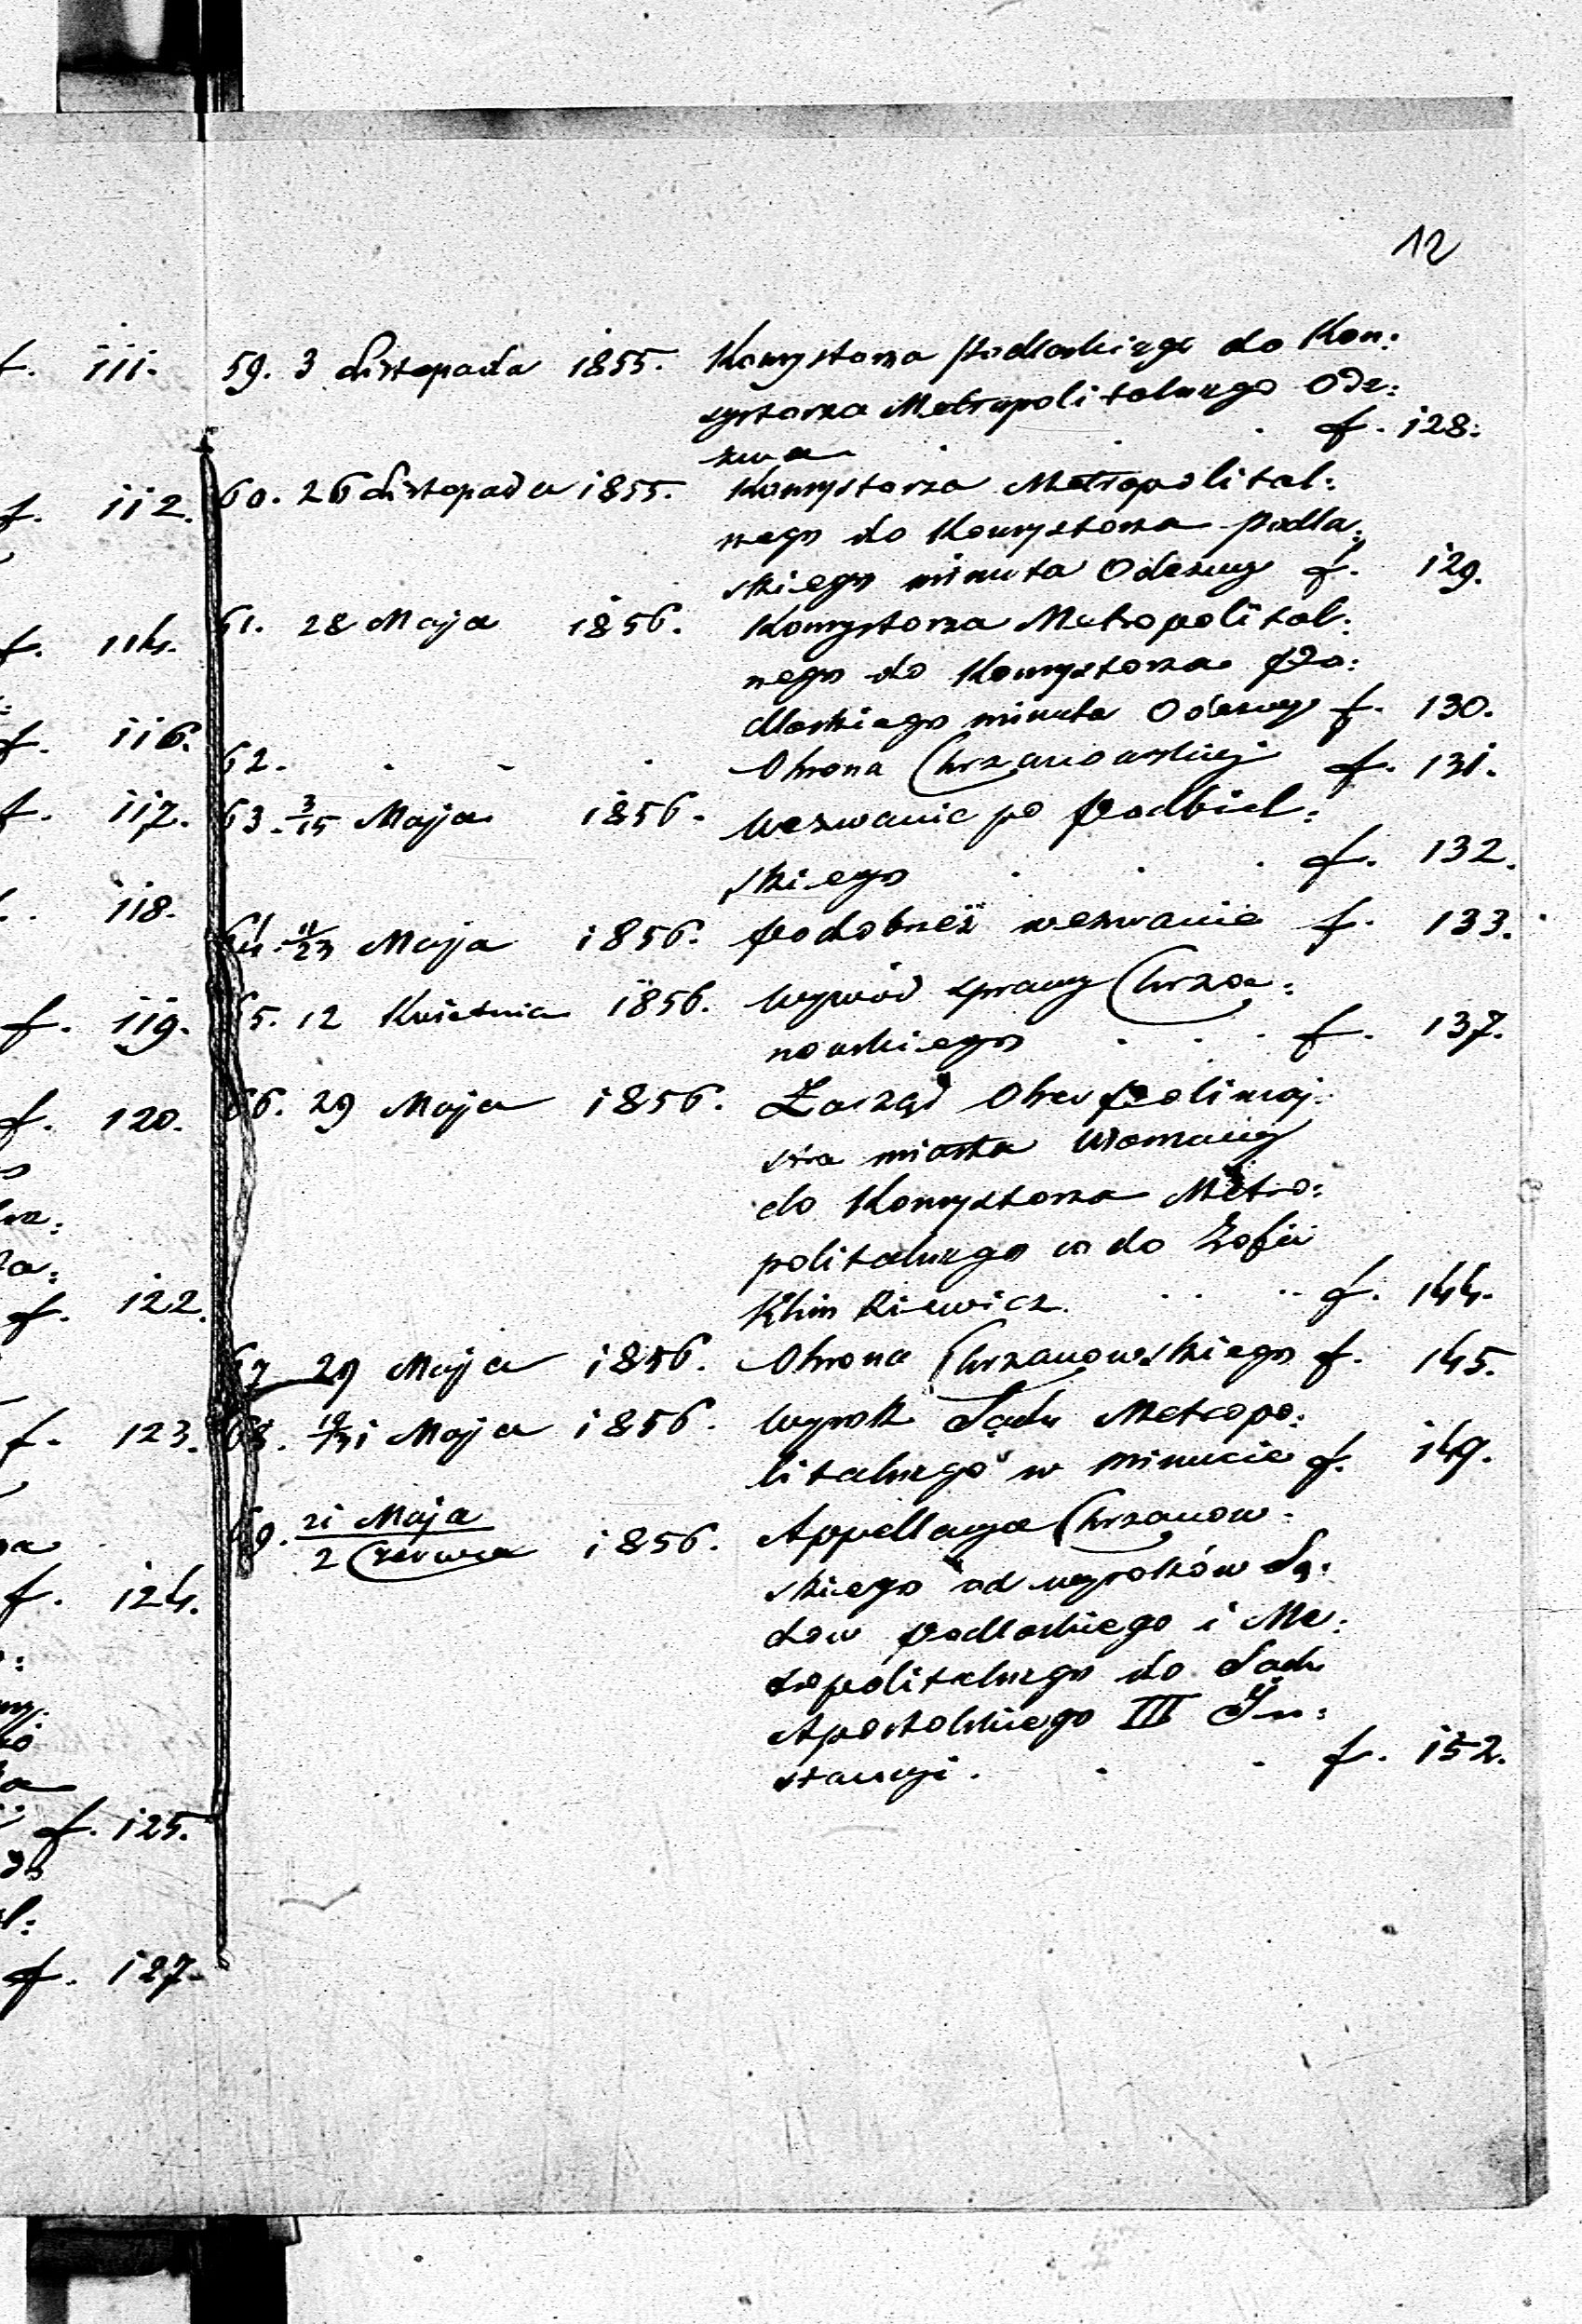 12
f. 111.
f. 112.
f. 114.
f. 116.
f. 117.
118.
f. 119.
f. 120.
f. 122.
f. 123.
f. 124.
f. 125.
f. 127.
59. 3 Listopada 1855. Konsystorza Podlaskiego do Kon:
systorza Metropolitalnego Ode:
zwa f. 128.
60. 26 Listopada 1855. Konsystorza Metropolital:
nego do Konsystorza Podla:
skiego minuta Odezwy f. 129.
61. 28 Maja 1856. Konsystorza Metropolital:
nego do Konsystorza Po:
dlaskiego minuta Odezwy f. 130.
62. Obrona Chrzanowskiej f. 131.
63. 3/15 Maja 1856. Wezwanie po Podbiel:
skiego f. 132.
64. 11/23 Maja 1856. Podobneż wezwanie f. 133.
65. 12 Kwietnia 1856. Wywód sprawy Chrza:
nowskiego f. 137.
66. 29 Maja 1856. Zarząd Ober Policmaj:
stra miasta Warszawy
do Konsystorza Metro:
politalnego co do Zofii
Klimkiewicz f. 144.
67 29 Maja 1856. Obrona Chrzanowskiego f. 145.
68. 19/31 Maja 1856. Wyrok Sądu Metropo:
litalnego w minucie f. 149.
69. 21 Maja
2 Czerwca 1856. Appellacya Chrzanow:
skiego od wyroków Są:
dów Podlaskiego i Me:
tropolitalnego do Sądu
Apostolskiego III In:
stancyi. f. 152.